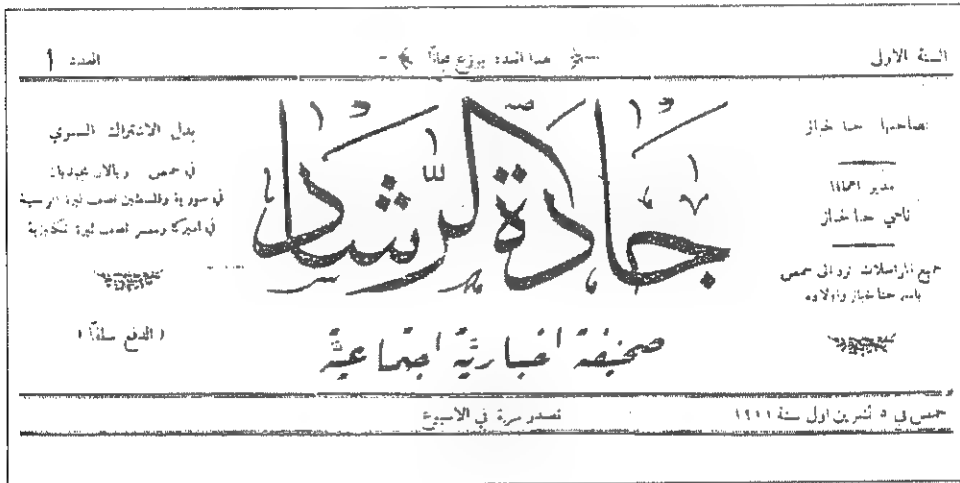 السنة الاولى
هذا العدد يوزع مجاناً
العدد 1
لصاحبها حنا خباز
مدير اعمالها
ناجي حنا خباز
جميع المراسلات ترد الى حمص
باسم حنا خباز واولاده
جادة الرشاد
صحيفة اخبارية اجتماعية
بدل الاشتراك السنوي
في حمص وبالان مجيديان
في سورية وفلسطين نصف ليرة افرنسية
في اميركا ومصر نصف ليرة انكليزية
( الدفع سلفاً )
حمص في ٥ تشرين اول سنة ١٩١١
تصدر مرة في الاسبوع